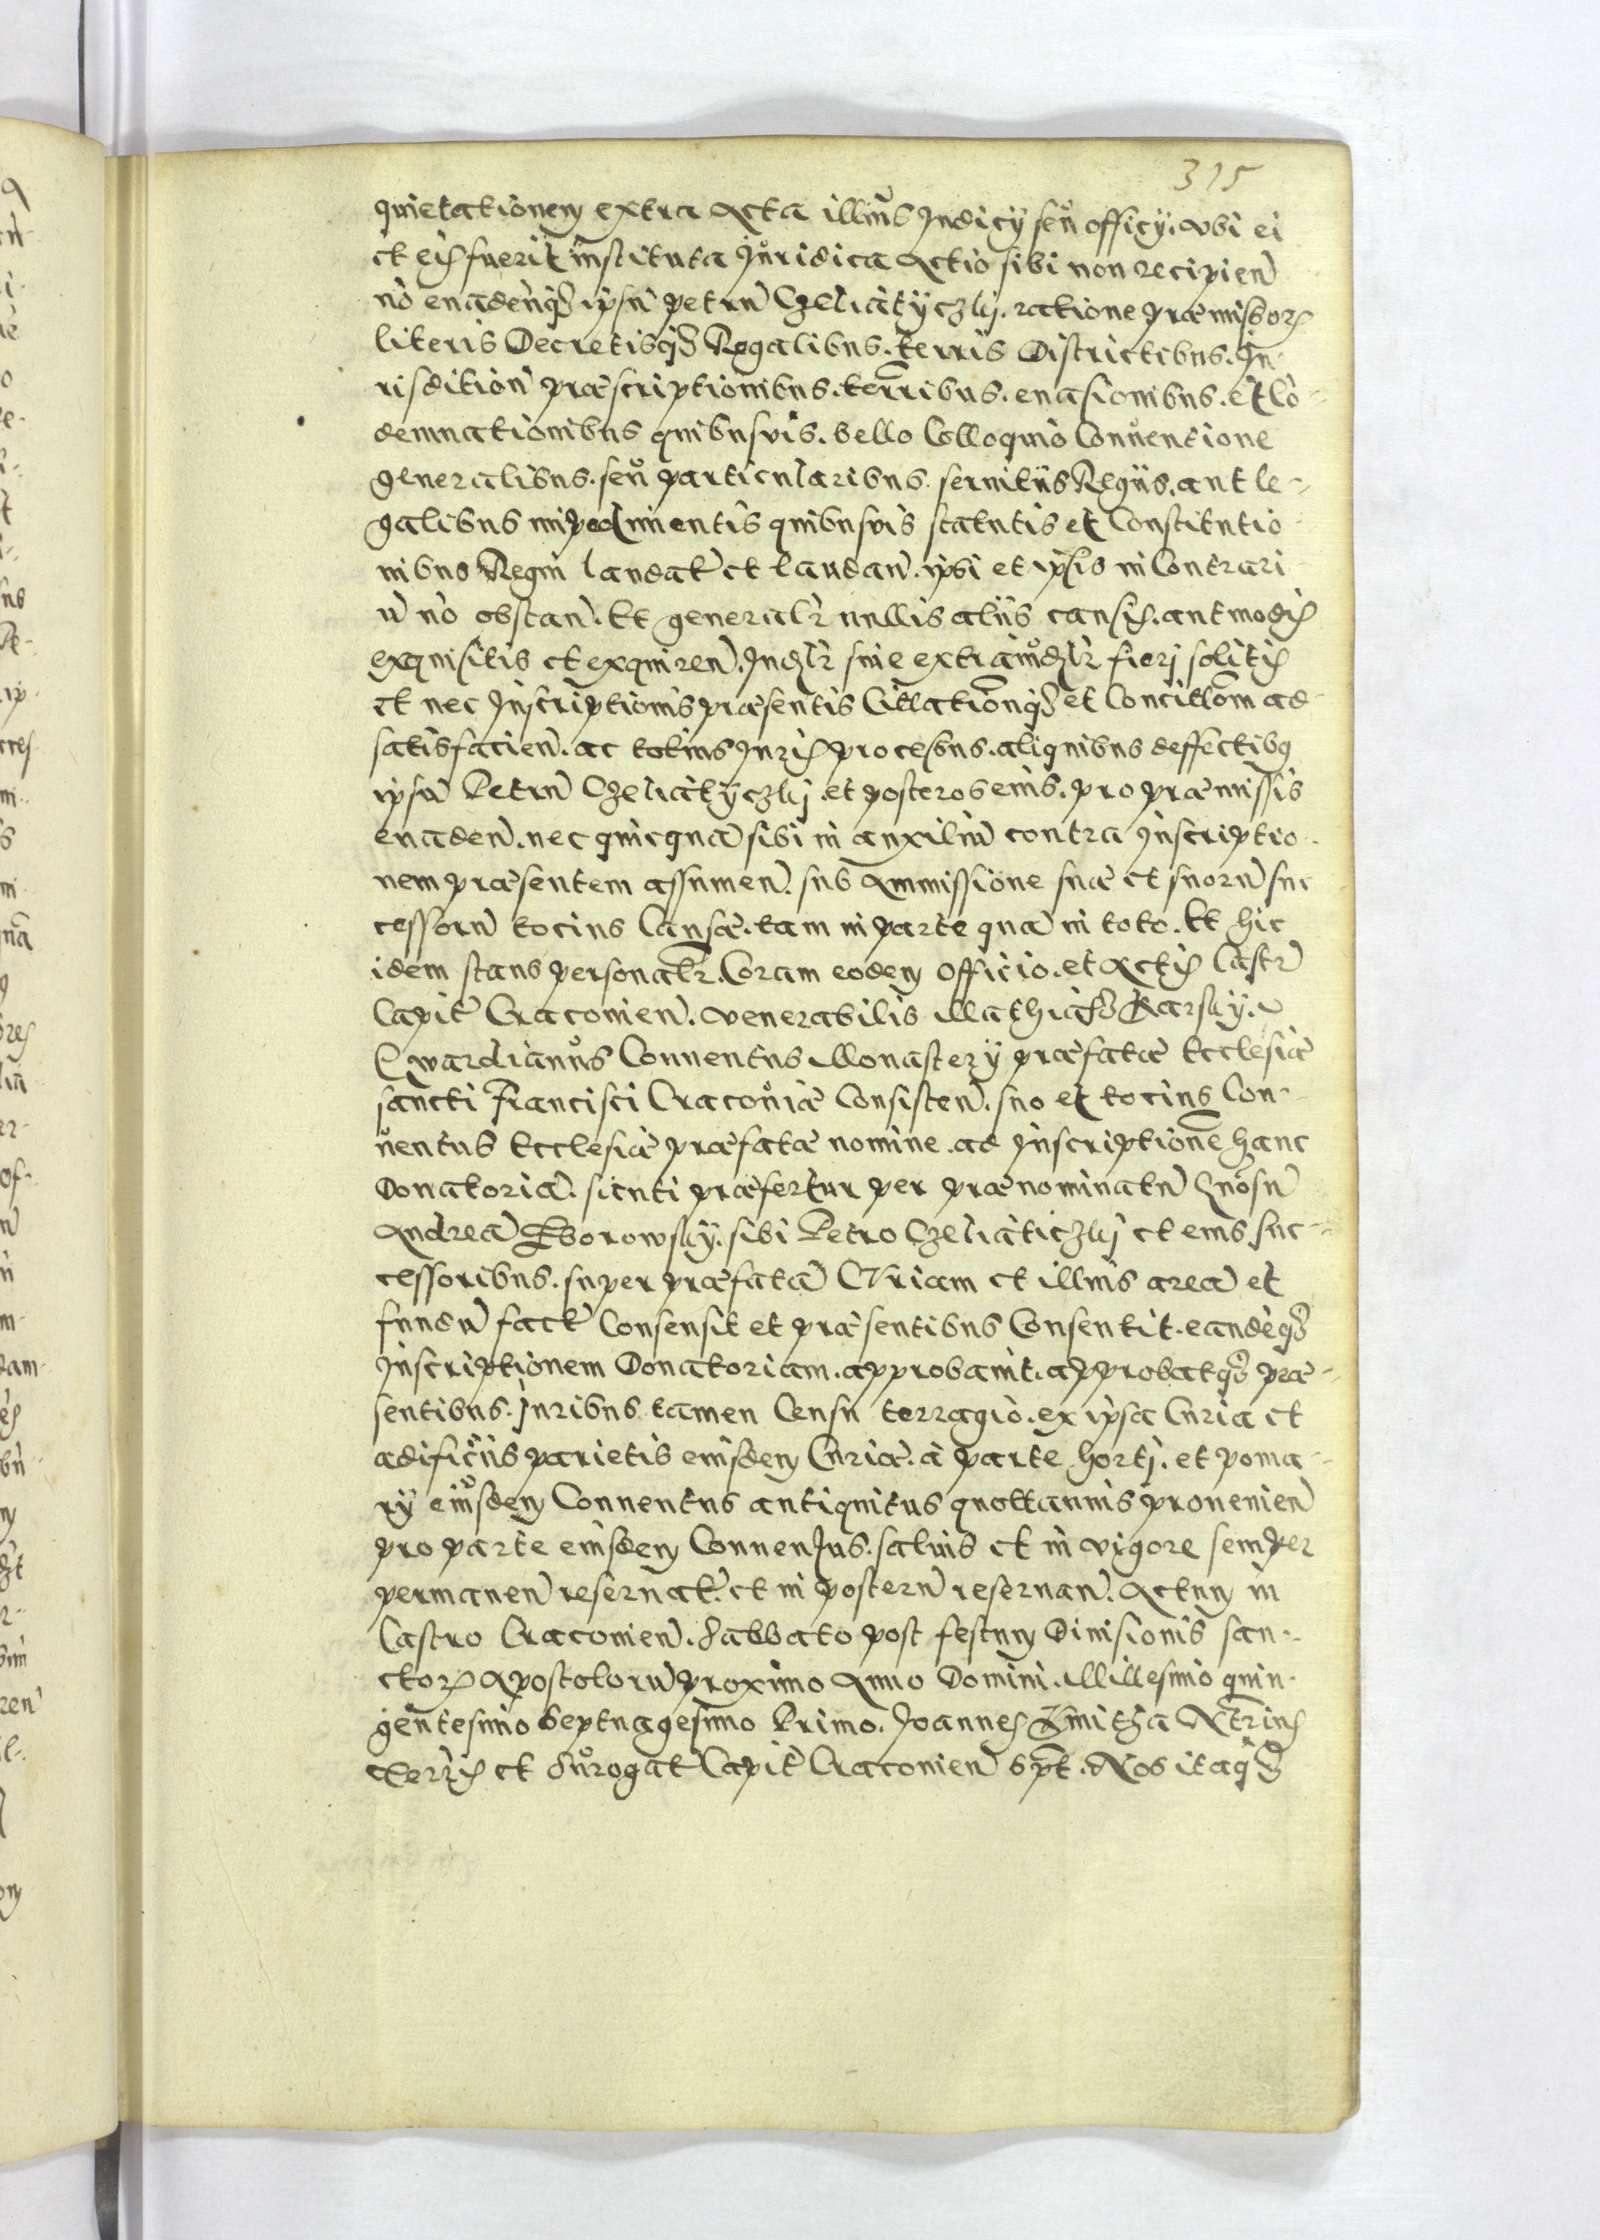 315
quietationem extra Acta illius Judicÿ seu officÿ. Vbi ei
et eis fuerit instituta Juridica Actio sibi non recipien̄
nō euadenqȝ ipsū petrū Czeliatÿczkj. ratione præmissorꝫ
literis Decretisqȝ Regalibus. terris Districtibus. Ju-
risdition̄ præscriptionibus. terrribus. euasionibus. et Cō-
demnationibus quibusvis. bello Colloquio Conuentione
generalibus. seu particularibus. seruitiis Regiis. aut le-
galibus impedimentis quibusvis statutis et Constitutio-
nibus Regni laudat̄ et laudan̄. ipsi et ipsis in Contrari-
ū nō obstan̄. Et generalr̄ nullis aliis causis. aut modis
exquisitis et exquiren̄. Judlr̄ siue extraiudlr̄ fieri solitis
et nec Inscriptionis præsentis Cittationqȝ et Concittōm ad
satisfacien̄. ac totius Juris processus. aliquibus deffectibꝰ
ipsū Petrū Czeliatÿczkj et posteros eius. pro præmissis
euaden̄. nec quicquā sibi in auxiliū contra Inscriptio-
nem præsentem assumen̄. sub Ammissione suæ et suorū suc-
cessorū tocius Causæ. tam in parte quā in toto. Et hic
idem stans personalr̄. Coram eodem officio. et Actis Castr̄
Capit̄ Cracouien̄. venerabilis Mathias Karskÿ.
Gwardianus Conuentus Monasterÿ præfatæ Ecclesiæ
sancti Francisci Cracouiæ Consisten̄. suo et tocius Con-
uentus Ecclesiæ præfatæ nomine. ad Inscriptionē hanc
Donatoriā. sicuti præfertur per prænominatū Gnōsū
Andreā Zborowskÿ. sibi Petro Czeliaticzkj et eius suc-
cessoribus. super præfatā CVriam et illius areā et
fundū fact̄ Consensit et præsentibus Consentit. eandēqȝ
Inscriptionem Donatoriam. approbauit. approbatqȝ præ-
sentibus. Juribus tamen Censu terragio. ex ipsa Curia et
ædificiis parietis eiusdem Curiæ. à parte horti. et poma-
rÿ eiusdem Conuentus antiquitus quottannis prouenien̄
pro parte eiusdem Conuentus. saluis et in vigore semper
permanen̄ reseruat̄. et in posterū reseruan̄. Actum in
Castro Cracouien̄. Sabbato post festum Diuisionis san-
ctorꝫ Apostolorū proximo Anno Domini. Millesimo quin-
gentesimo Septuagesimo Primo. Joannes
et Surogat̄ Capit̄ Cracouien̄ spt̄. Nos itaqȝ